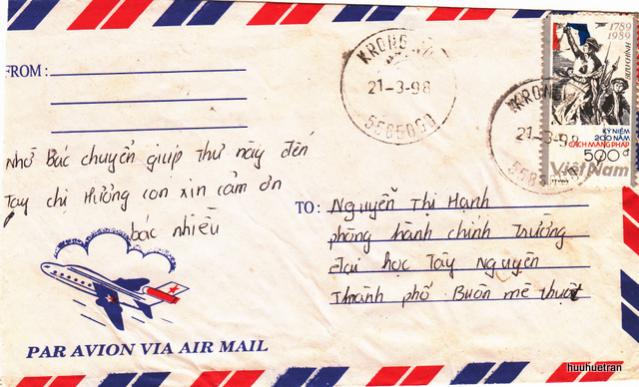 FROM:
Nhờ Bác chuyển giúp thư này đến
tay chị Hương con xin cảm ơn
bác nhiều
PAR AVION VIA AIR MAIL
KRONG
21-3-98
KRONG
21-3-98
1789
1989
KỶ NIỆM
200 NĂM
CÁCH MẠNG PHÁP
500đ
Việt Nam
TO: Nguyễn Thị Hạnh
phòng hành chính Trường
đại học Tây Nguyên
Thành phố Buôn mê thuột
huuhuetran